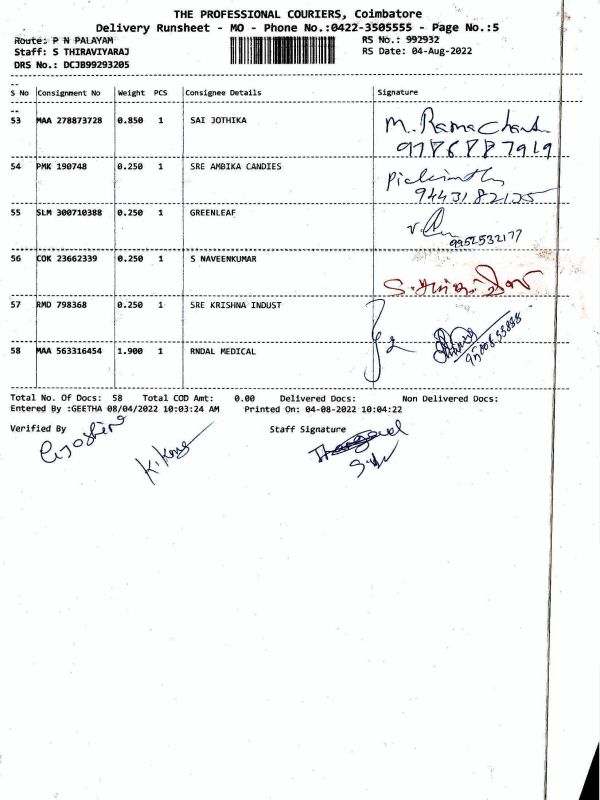 THE PROFESSIONAL COURIERS, Coimbatore
Delivery Runsheet - MO - Phone No.:0422-3505555 - Page No.:5
Route: P N PALAYAM RS No.: 992932
Staff: S THIRAVIYARAJ RS Date: 04-Aug-2022
DRS No.: DCJB99293205
S No Consignment No Weight PCS Consignee Details Signature
53 MAA 278873728 0.850 1 SAI JOTHIKA M. Ramachandran
54 PMK 190748 0.250 1 SRE AMBIKA CANDIES
9443182135
55 SLM 300710388 0.250 1 GREENLEAF
9952532177
56 COK 23662339 0.250 1 S NAVEENKUMAR
57 RMD 798368 0.250 1 SRE KRISHNA INDUST
58 MAA 563316454 1.900 1 RNDAL MEDICAL
Total No. Of Docs: 58 Total COD Amt: 0.00 Delivered Docs: Non Delivered Docs:
Entered By :GEETHA 08/04/2022 10:03:24 AM Printed On: 04-08-2022 10:04:22
Verified By Staff Signature